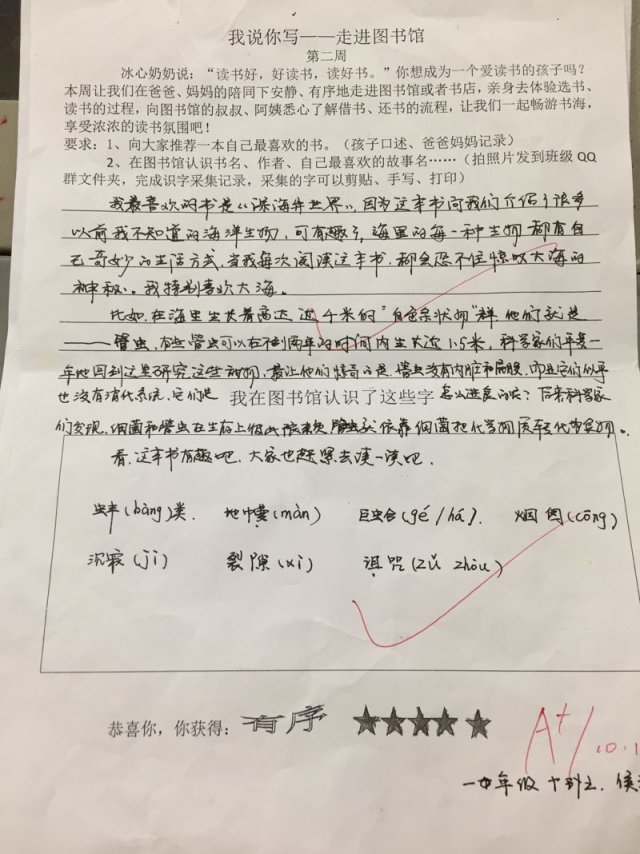 我说你写——走进图书馆
第二周
冰心奶奶说：“读书好，好读书，读好书。”你想成为一个爱读书的孩子吗？
本周让我们在爸爸、妈妈的陪同下安静、有序地走进图书馆或者书店，亲身去体验选书、
读书的过程，向图书馆的叔叔、阿姨悉心了解借书、还书的流程，让我们一起畅游书海，
享受浓浓的读书氛围吧！
要求：1、向大家推荐一本自己最喜欢的书。（孩子口述、爸爸妈妈记录）
2、在图书馆认识书名、作者、自己最喜欢的故事名……（拍照片发到班级 QQ
群文件夹，完成识字采集记录，采集的字可以剪贴、手写、打印）
我最喜欢的书是《深海异世界》，因为这本书向我们介绍了很多
以前我不知道的海洋生物，可有趣了，海里的每一种生物都有自
己奇妙的生活方式，当我每次阅读这本书，都会忍不住惊叹大海的
神秘。我特别喜欢大海。
比如，在海里生长着高达近4米的“白色条状物”群，他们就是
——管虫，有些管虫可以在不到两年的时间内生长近1.5米，科学家们年复一
年地回到这里研究这些动物，最让他们惊奇的是，管虫没有内脏和眼，而且它们似乎
也没有消化系统，它们是怎么进食的呢？后来科学家
我在图书馆认识了这些字
们发现，细菌和管虫在生存上彼此依赖，管虫就依靠细菌把化学物质转化成食物。
看，这本书有趣吧，大家也赶紧去读一读吧。
蚌(bàng)类 地幔(màn) 巨蛤(gé/há) 烟囱(cōng)
沉寂(jì) 裂隙(xì) 诅咒(zǔ zhòu)
恭喜你，你获得：有序 ★★★★★
A+ 10.1
一年级十班